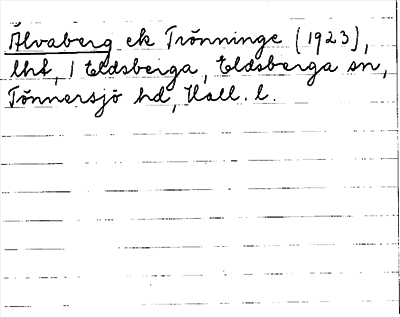 Älvaberg ek Trönninge (1923),
lht, 1 Eldsberga, Eldsberga sn,
Tönnersjö hd, Hall. l.